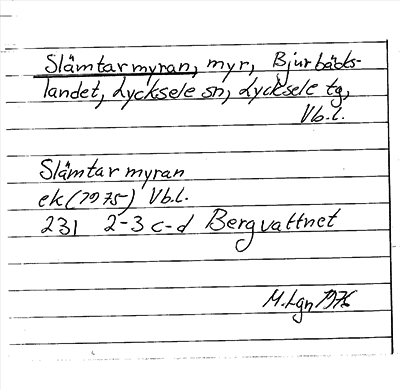 Slåmtarmyran, myr, Bjurbäcks-
landet, Lycksele sn, Lycksele tg,
Vb.l.
Slåmtarmyran
ek (1975) Vb.l.
231 2-3 c-d Bergvattnet
M. Lgn 1976